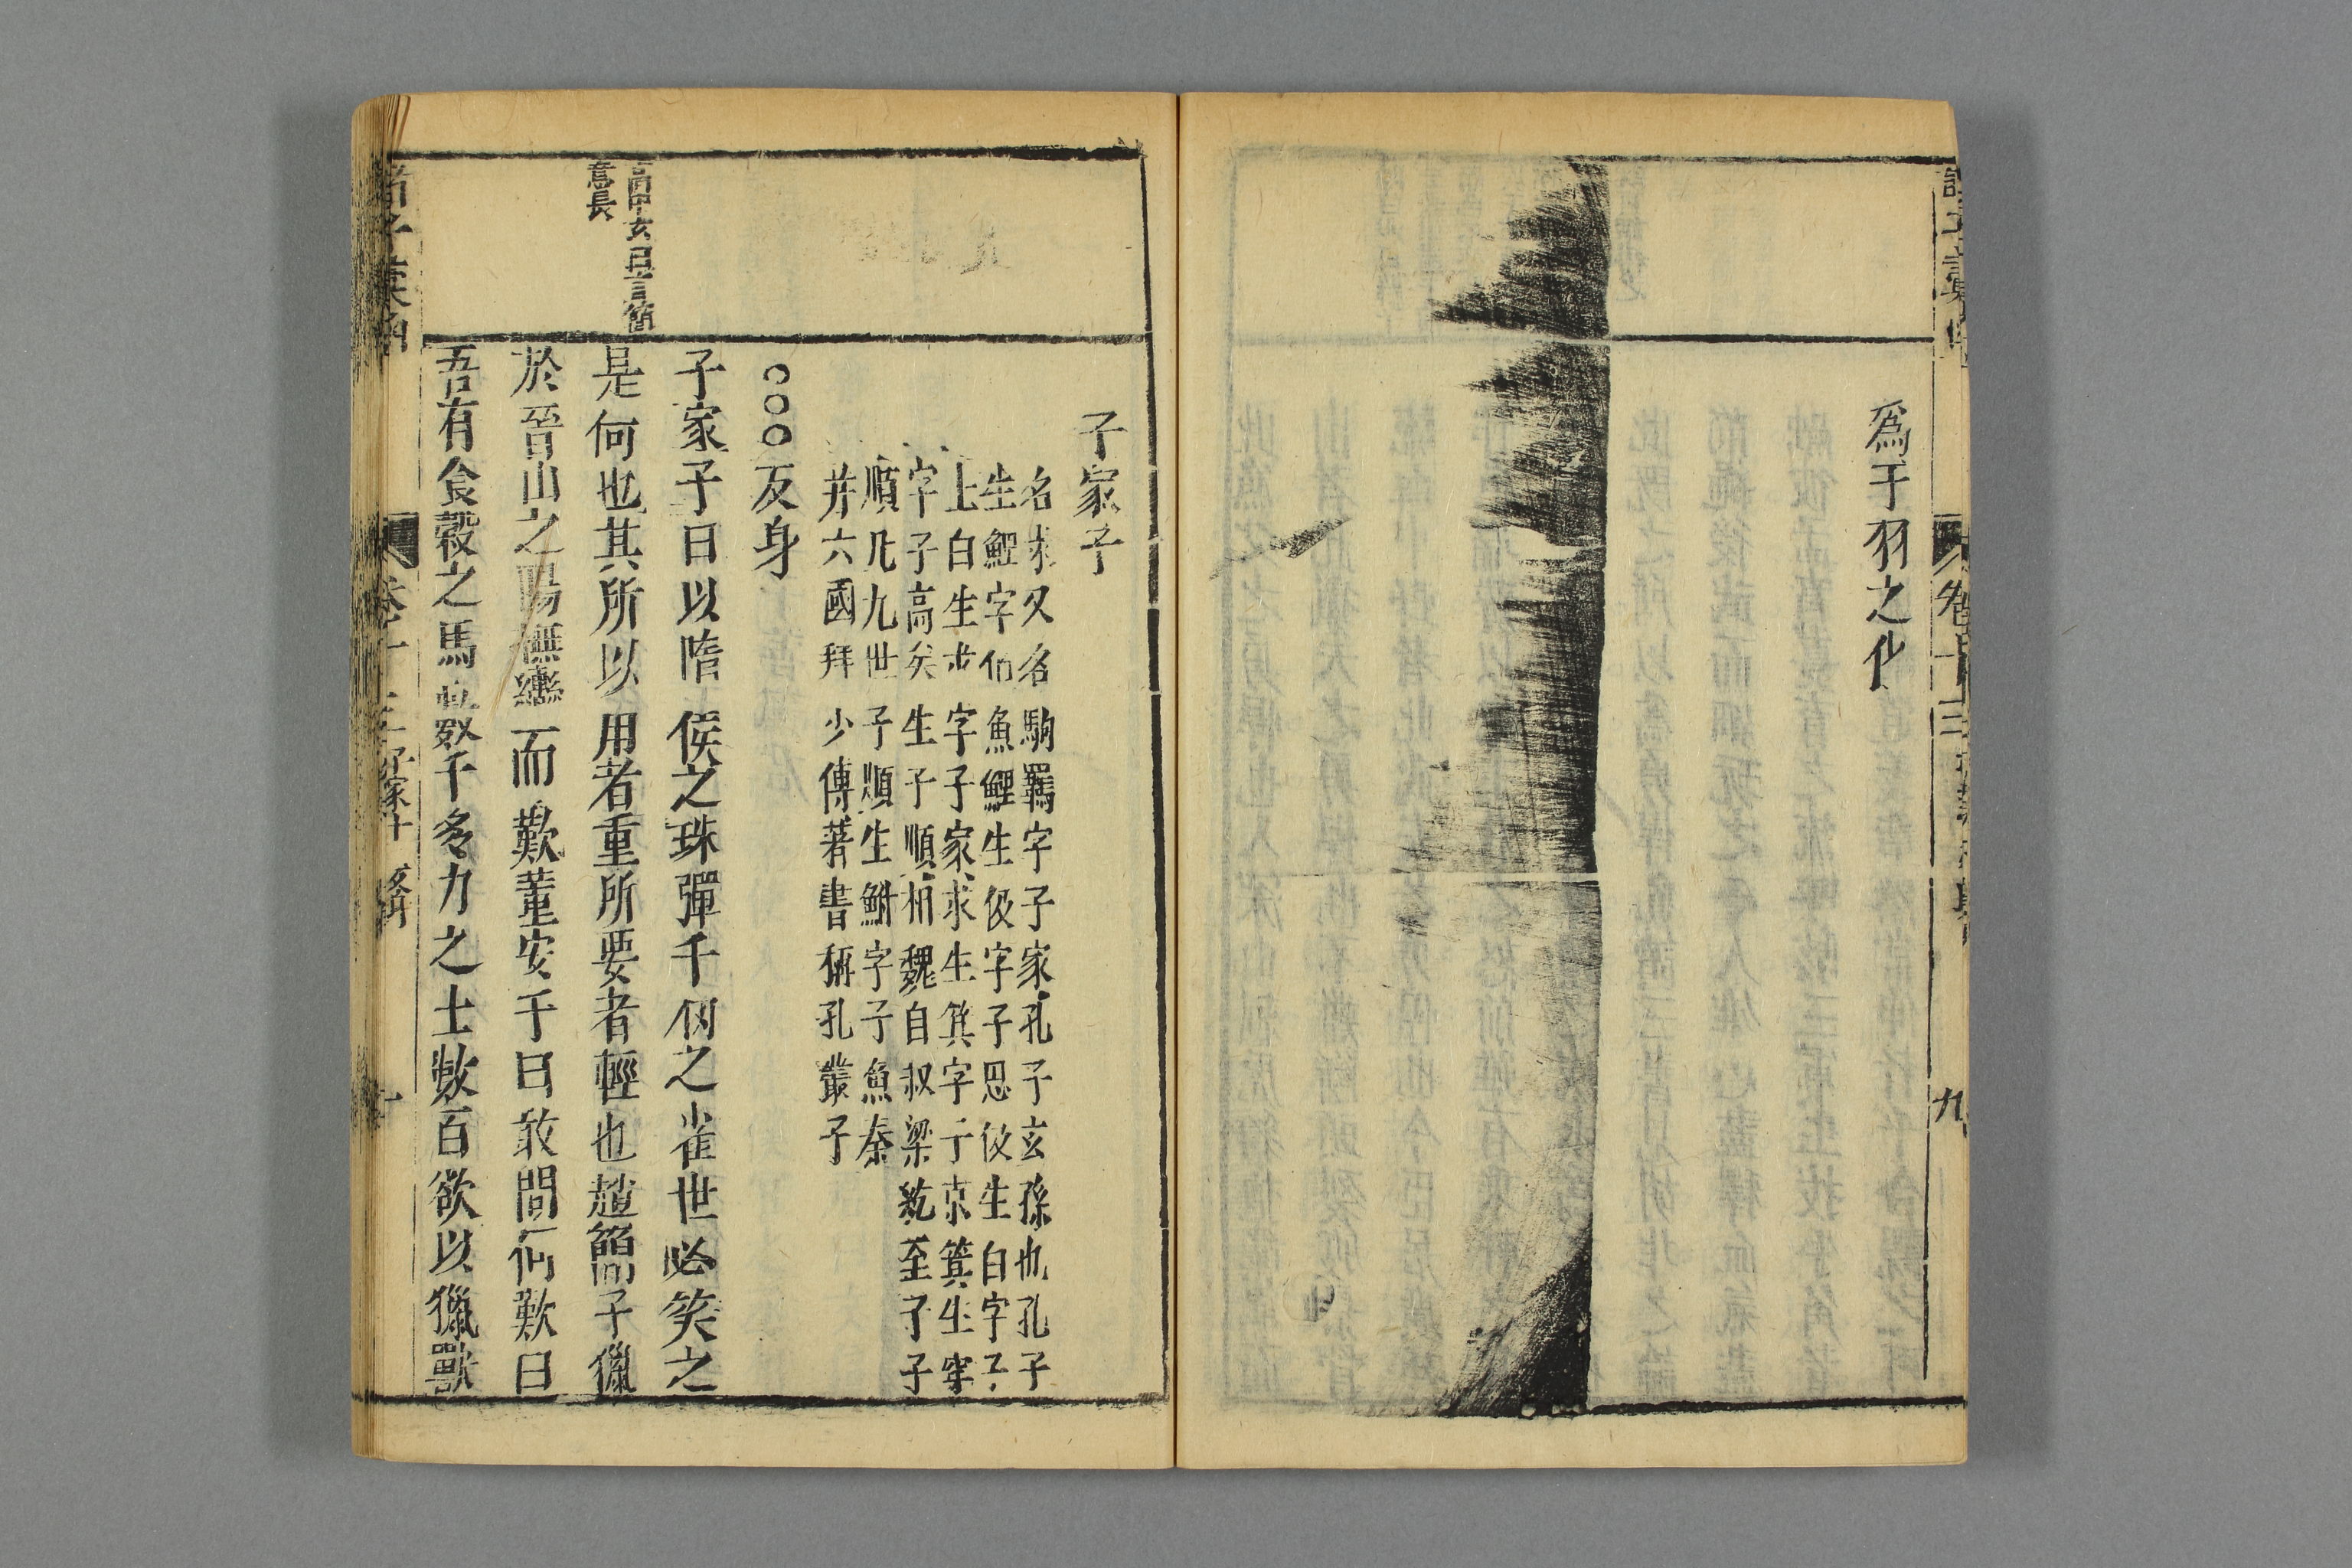 爲于羽之化
卷十三
九
子家子
名求又名駒羈字子家孔子玄孫也孔子
生鯉字伯魚鯉生伋字子思伋生白字子
上白生求字子家求生箕字子京箕生穿
字子高矣生子順相魏自叔梁紇至子子
順凡九世子順生鮒字子魚秦
并六國拜少傅著書稱孔叢子
○○○反身
高中玄曰言簡
意長
子家子曰以隋侯之珠彈千仞之雀世必笑之
是何也其所以用者重所要者輕也趙簡子獵
於晉山之陽撫轡而歎董安于曰敢問何歎曰
吾有食穀之馬數千多力之士數百欲以獵獸
諸子彙函
卷十三
子家子